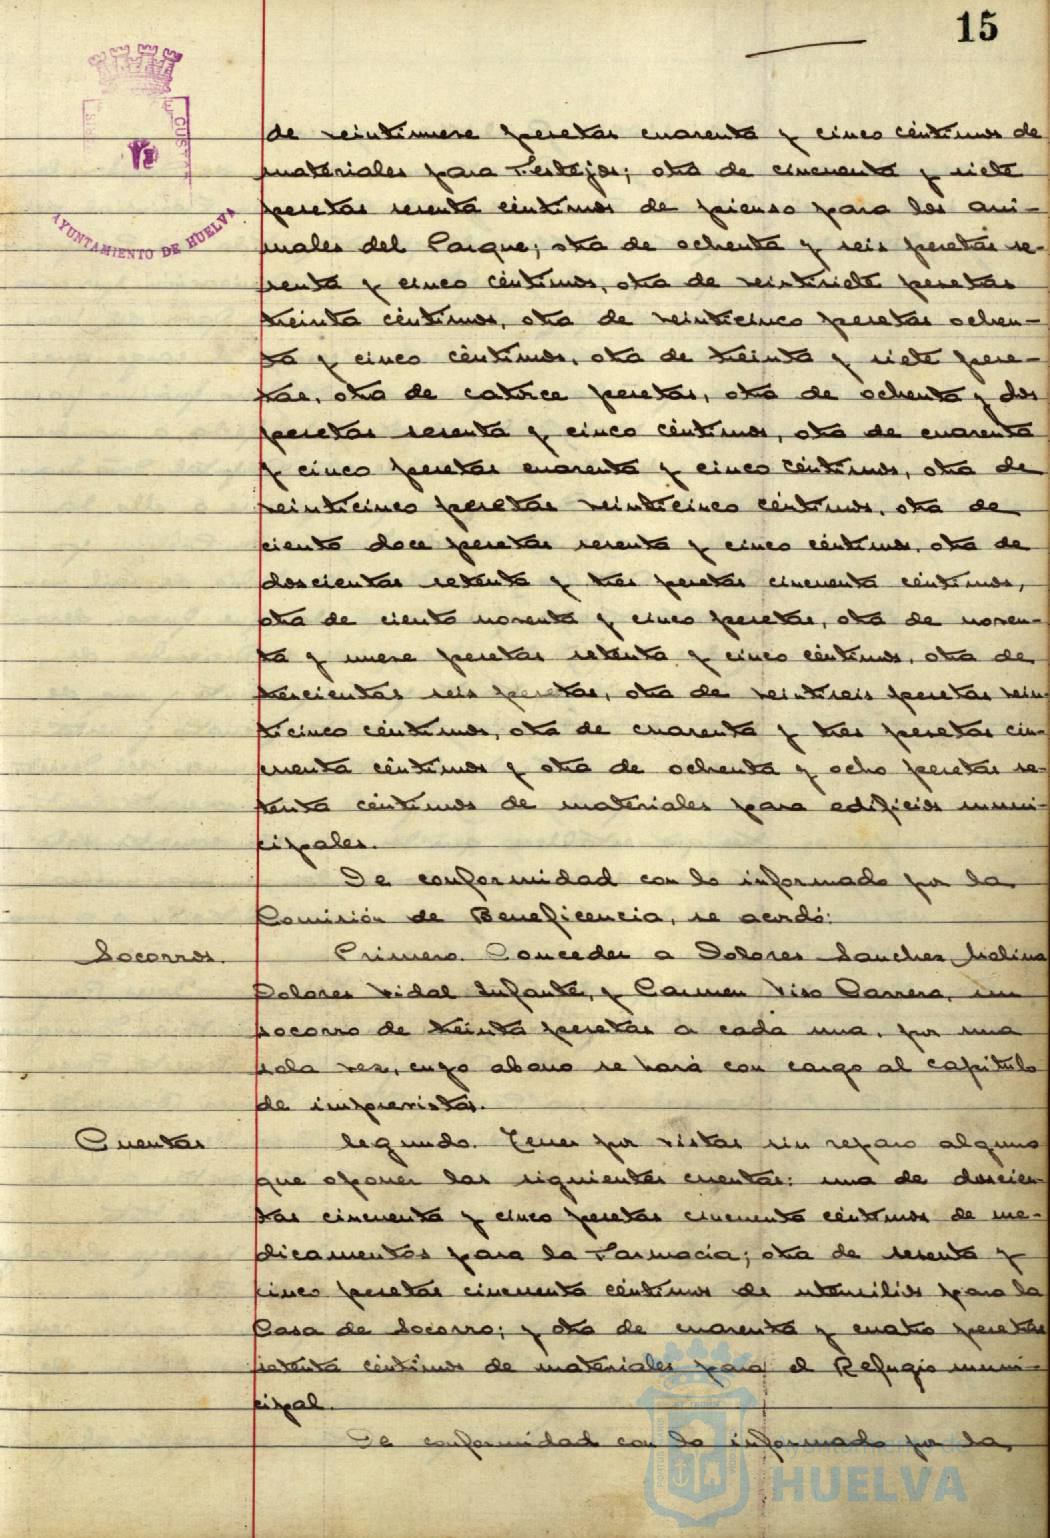 15
AYUNTAMIENTO DE HUELVA
de veintinueve pesetas cuarenta y cinco céntimos de
materiales para Festejos; otra de cincuenta y siete
pesetas sesenta céntimos de pienso para los ani-
males del Parque; otra de ochenta y seis pesetas se-
senta y cinco céntimos, otra de veintisiete pesetas
treinta céntimos, otra de veinticinco pesetas ochen-
ta y cinco céntimos, otra de treinta y siete pese-
tas, otra de catorce pesetas, otra de ochenta y dos
pesetas sesenta y cinco céntimos, otra de cuarenta
y cinco pesetas cuarenta y cinco céntimos, otra de
veinticinco pesetas veinticinco céntimos, otra de
ciento doce pesetas sesenta y cinco céntimos, otra de
doscientas setenta y tres pesetas cincuenta céntimos,
otra de ciento noventa y cinco pesetas, otra de noven-
ta y nueve pesetas setenta y cinco céntimos, otra de
trescientas seis pesetas, otra de veintiseis pesetas vein-
ticinco céntimos, otra de cuarenta y tres pesetas cin-
cuenta céntimos y otra de ochenta y ocho pesetas se-
tenta céntimos de materiales para edificios muni-
cipales.
De conformidad con lo informado por la
Comisión de Beneficencia, se acordó:
Socorros. Primero. Conceder a Dolores Sanchez Molina
Dolores Vidal Infante, y Carmen Viso Carrera, un
socorro de treinta pesetas a cada una, por una
sola vez, cuyo abono se hará con cargo al capítulo
de imprevistos.
Cuentas Segundo. Tener por vistas sin reparo alguno
que oponer las siguientes cuentas: una de doscien-
tas cincuenta y cinco pesetas cincuenta céntimos de me-
dicamentos para la Farmacia; otra de sesenta y
cinco pesetas cincuenta céntimos de utensilios para la
Casa de Socorro; y otra de cuarenta y cuatro pesetas
setenta céntimos de materiales para el Refugio muni-
cipal.
De conformidad con lo informado por la
HUELVA